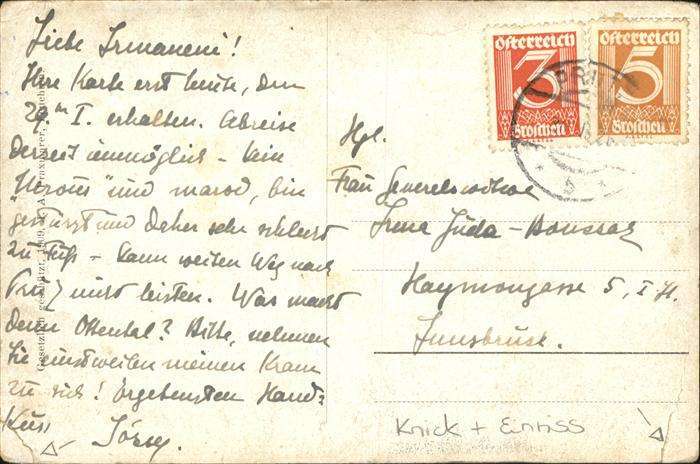 Liebe Irmaneni!
Ihre Karte erst heute, den
29.ten I. erhalten. Abreise
derzeit unmöglich – kein
"Heros" und marod, bin
gestürzt und daher sehr schlecht
zu Fuß – kann weiten Weg nach
nicht leisten. Was macht
denn Ottental? Bitte, nehmen
Sie einstweilen meinen Kram
zu sich! Ergebensten Hand-
Kuss
Österreich
3
Groschen
Österreich
5
Groschen
Hgl.
Frau Generalswitwe
Irma Juda-
Haymongasse 5, I. St.
Innsbruck.
Knick + Einriss
Gesetzlich geschützt, 1909